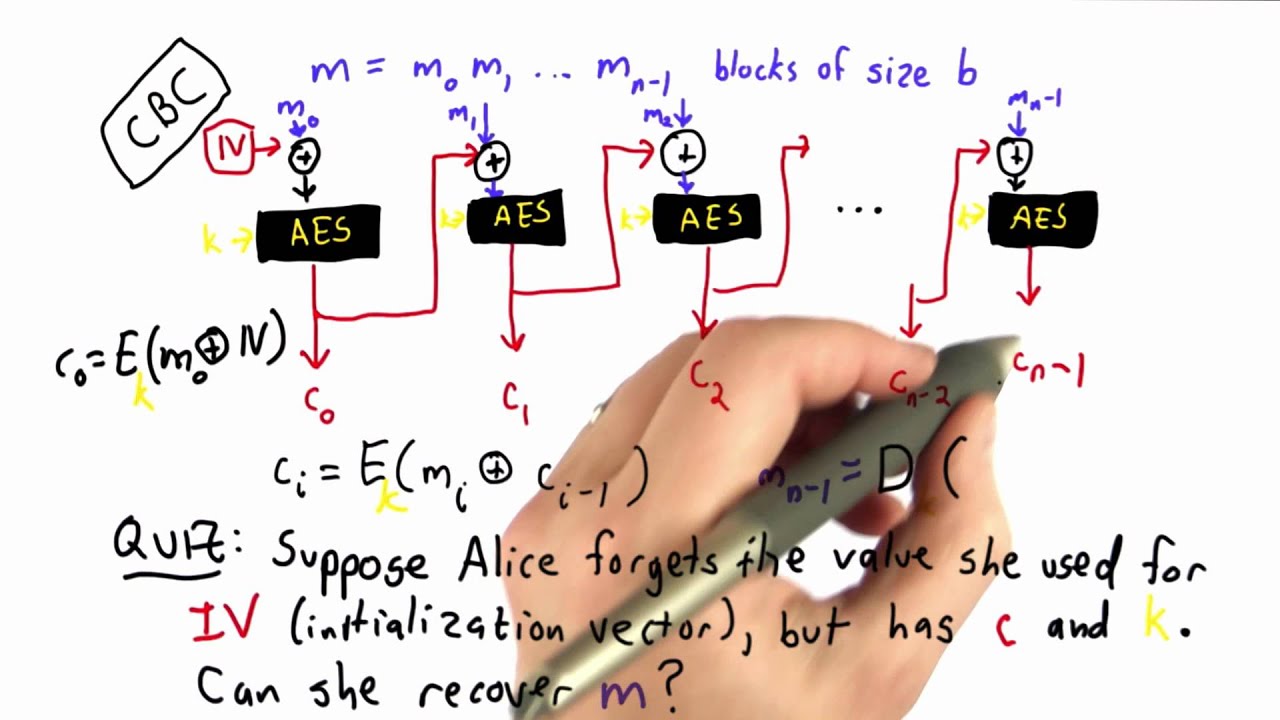 CBC
m = m₀ m₁ ... mₙ₋₁ blocks of size b
m₀ m₁ m₂ mₙ₋₁
IV + + + +
k AES k AES k AES ... k AES
c₀ = Eₖ(m₀ ⊕ IV)
c₀ c₁ c₂ cₙ₋₂ cₙ₋₁
cᵢ = Eₖ(mᵢ ⊕ cᵢ₋₁) mₙ₋₁ = D (
QUIZ: Suppose Alice forgets the value she used for
IV (initialization vector), but has c and k.
Can she recover m?